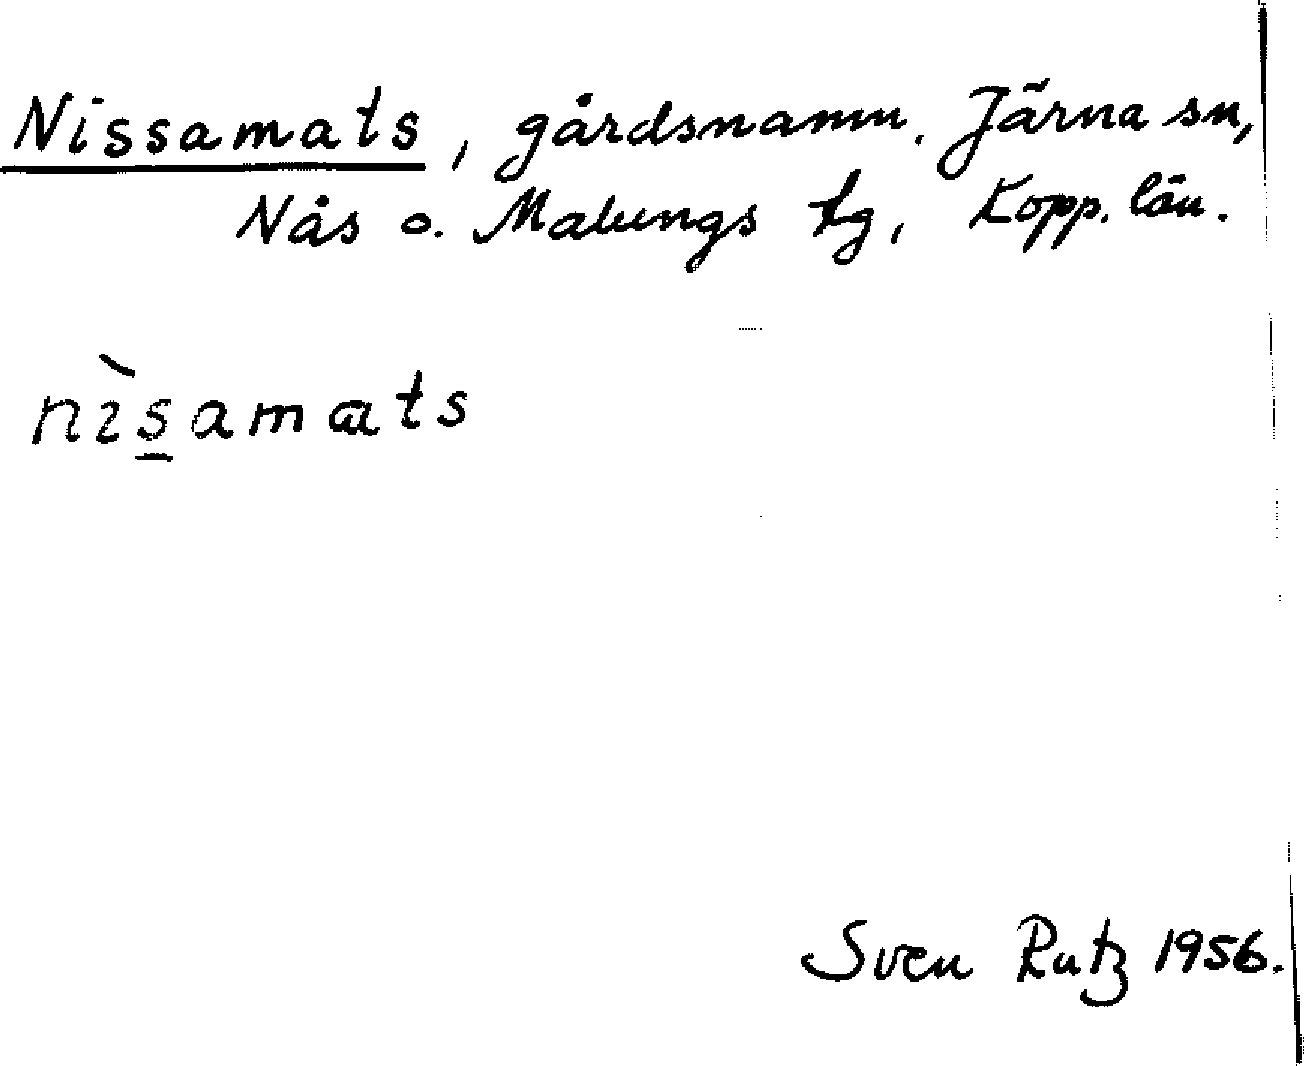 Nissamats, gårdsnamn. Järna sn,
Nås o. Malungs tg, Kopp. län.
nìs̲amαts
Sven Rutz 1956.